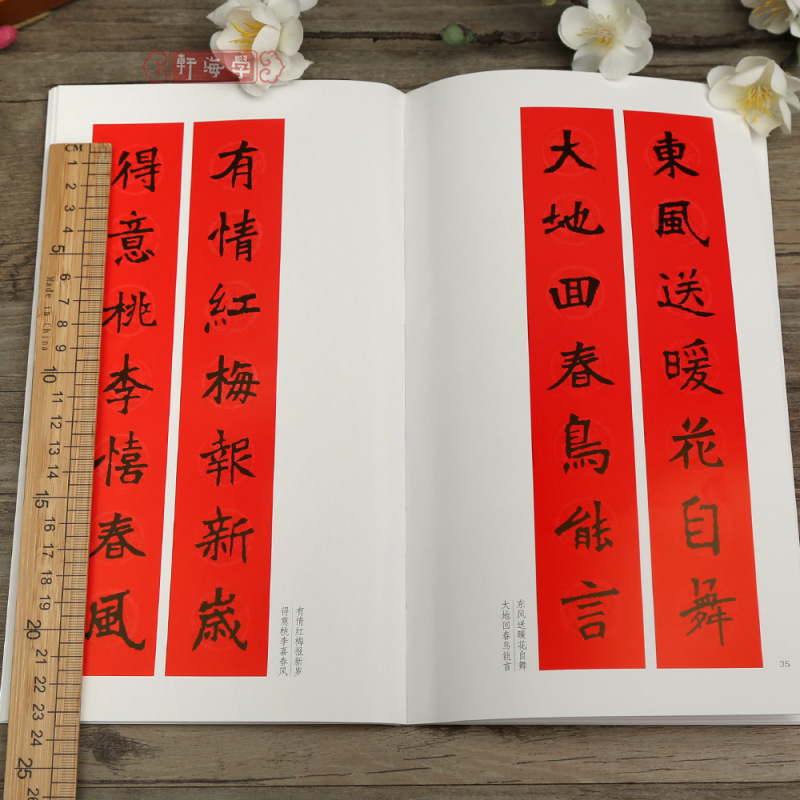 軒海學
東風送暖花自舞
大地囬春鳥能言
东风送暖花自舞
大地回春鸟能言
35
有情紅梅報新歲
得意桃李憘春風
有情红梅报新岁
得意桃李喜春风
CM
1
2
3
4
5
6
7
8
9
10
11
12
13
14
15
16
17
18
19
20
21
22
23
24
25
26
Made in China